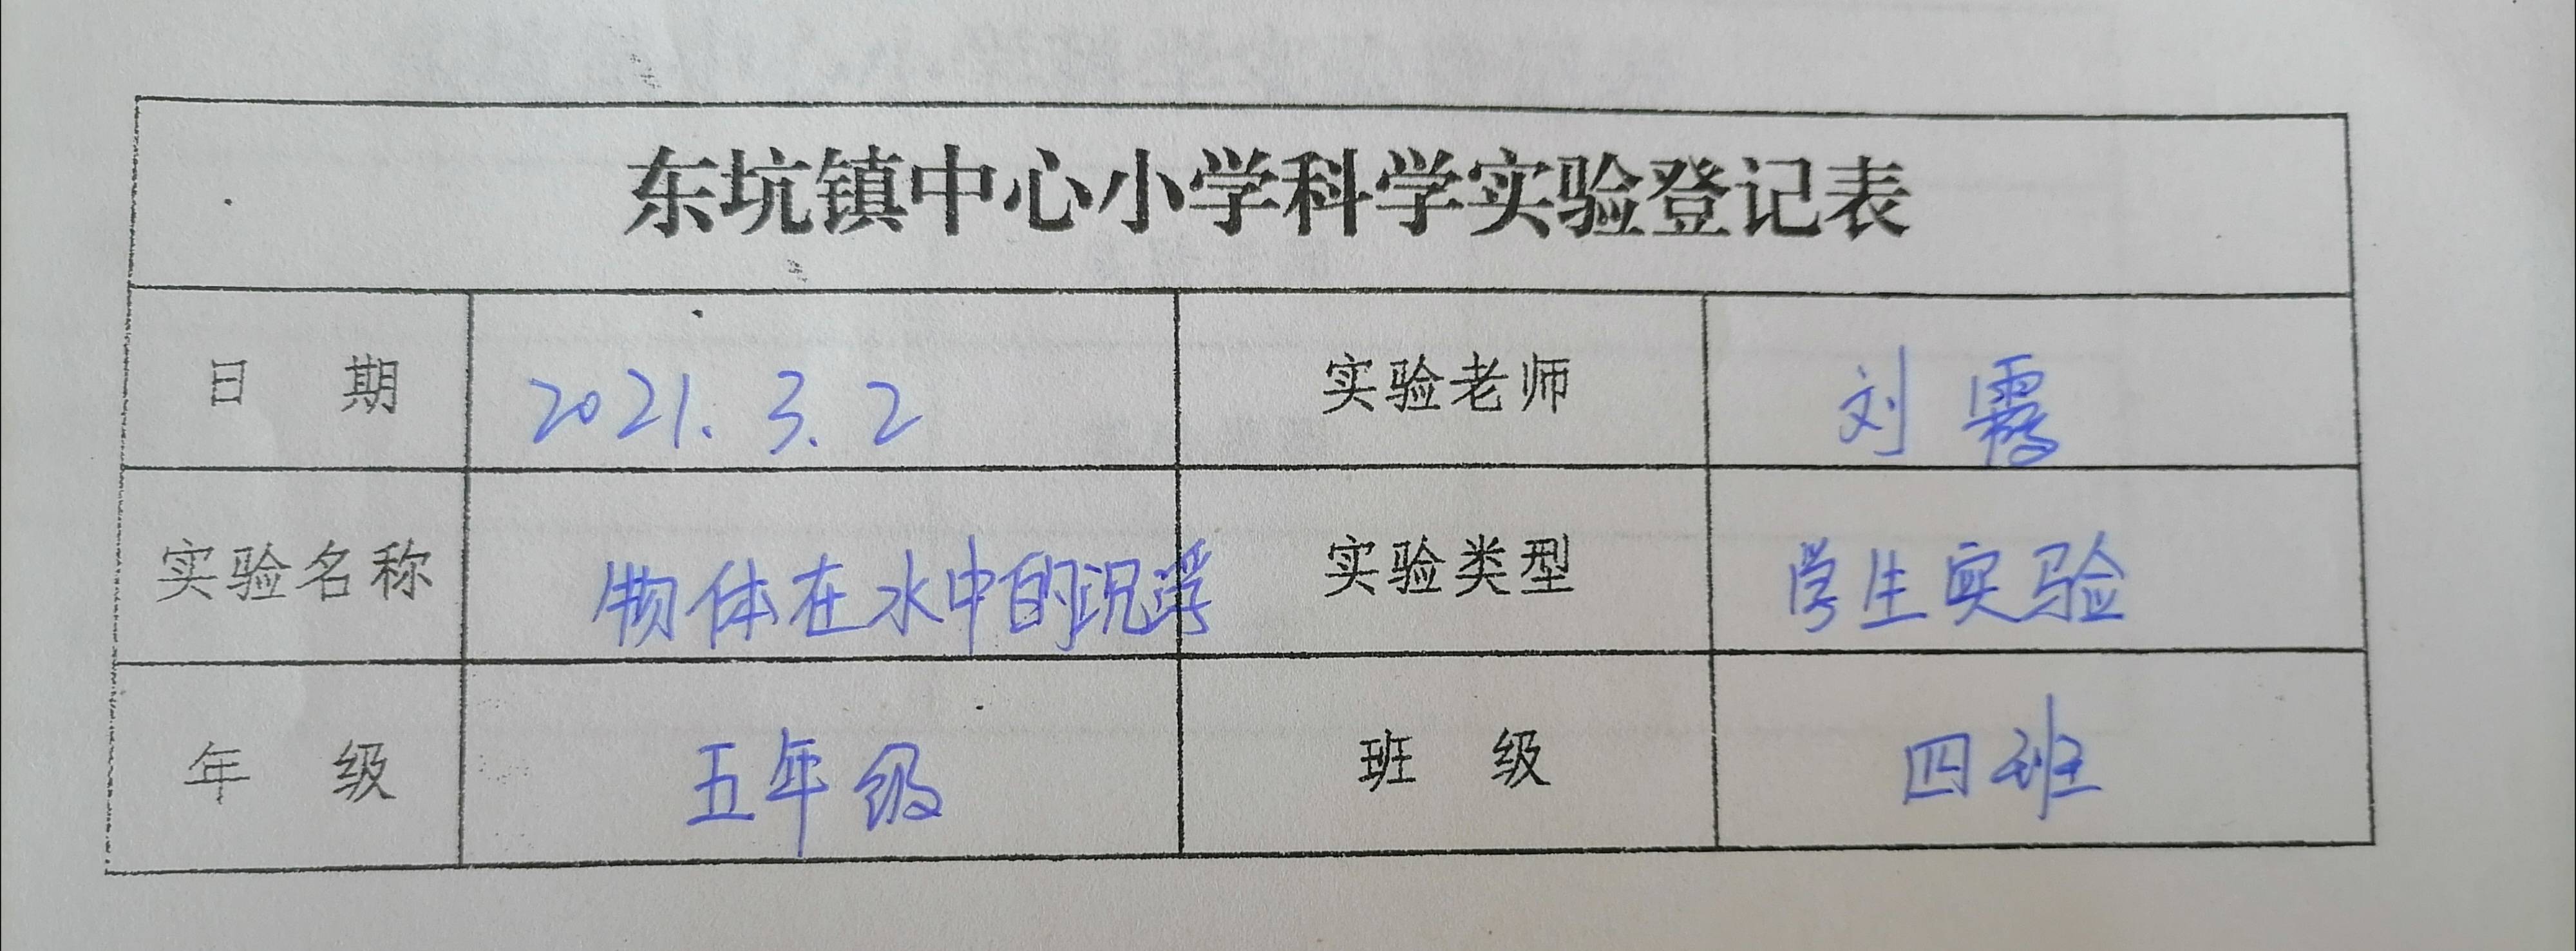 东坑镇中心小学科学实验登记表
日 期 2021.3.2 实验老师 刘霞
实验名称 物体在水中的沉浮 实验类型 学生实验
年 级 五年级 班 级 四班